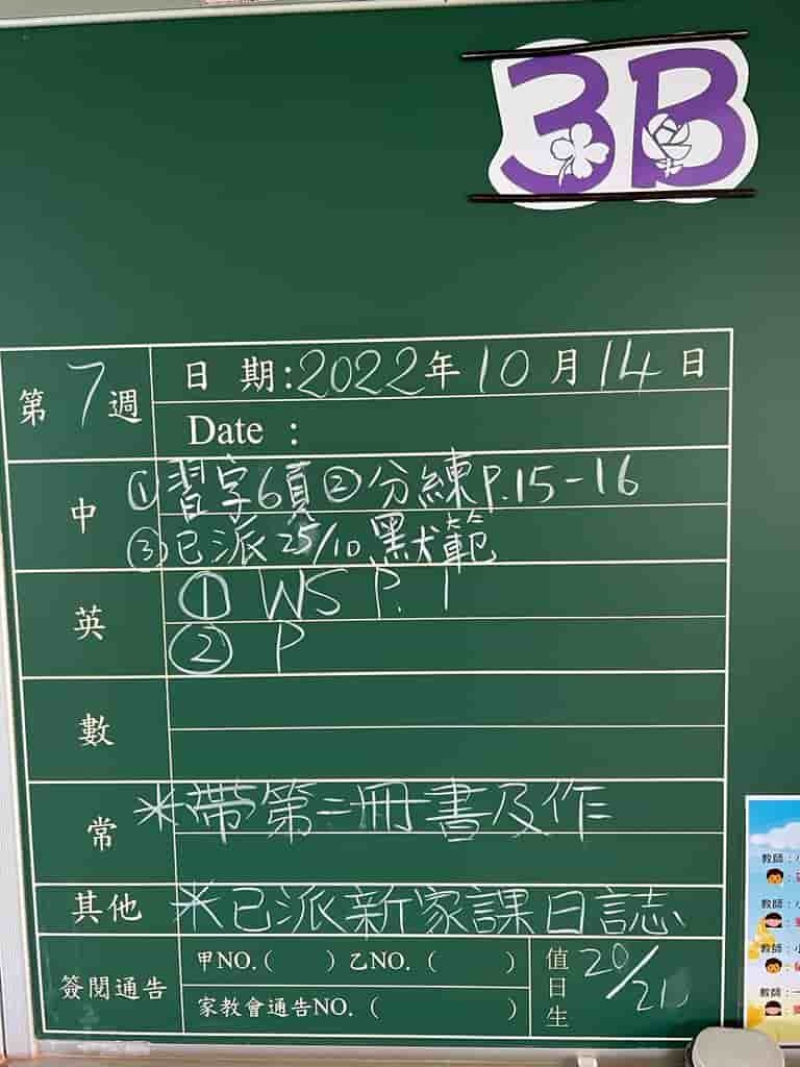 3B
第7週
日 期:2022年10月14日
Date :
中
①習字6頁②分練P.15-16
③已派25/10默範
英
① WS P. 1
② P
數
常
*帶第二冊書及作
其他
*已派新家課日誌
簽閱通告
甲NO.( )乙NO. ( )
家教會通告NO. ( )
值日生
20/21
教師:
教師:
教師:
教師: